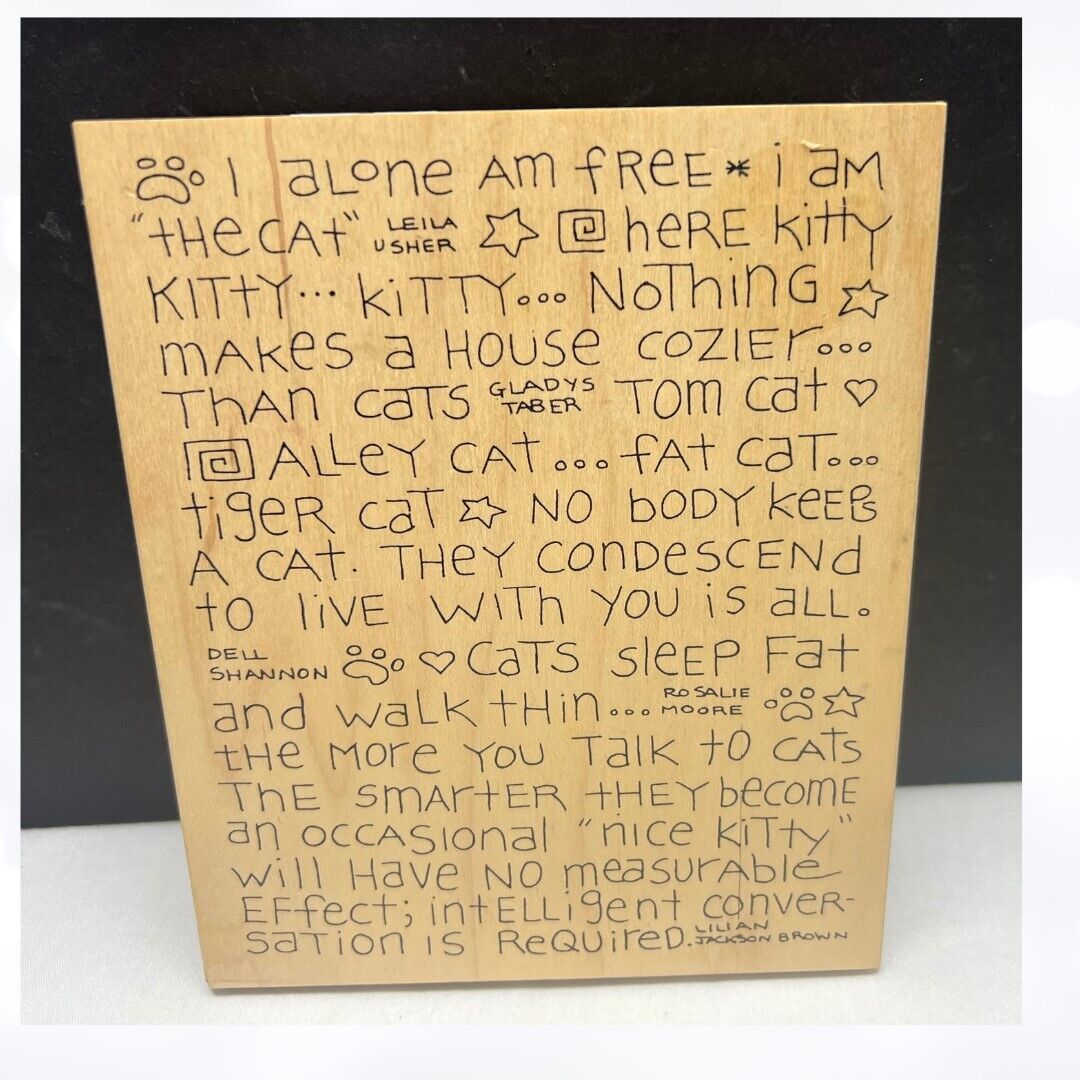 I aLone AM fREE * i aM
"tHe CAt" LEILA USHER heRE kitty
KITtY... kiTTY... NoThiNG
mAKes a HOUSe COZIEr...
ThAN CaTS GLADYS TABER TOM Cat
ALLeY CAt... fAt CaT...
tigeR CaT NO BODY KeEPs
A CAt. THeY CONDeSCENd
tO liVE WITh YOU iS aLL.
DELL SHANNON CaTS SlEEP Fat
and WaLK tHin... ROSALIE MOORE
tHe MOre YOU TalK tO CATs
ThE SMArtER tHEY beCOME
an OCCASIONal "niCe KiTty"
Will HaVe NO MeaSUrAble
EFfect; intELLigent COnVER-
SaTiON iS ReQUireD. LILIAN JACKSON BROWN